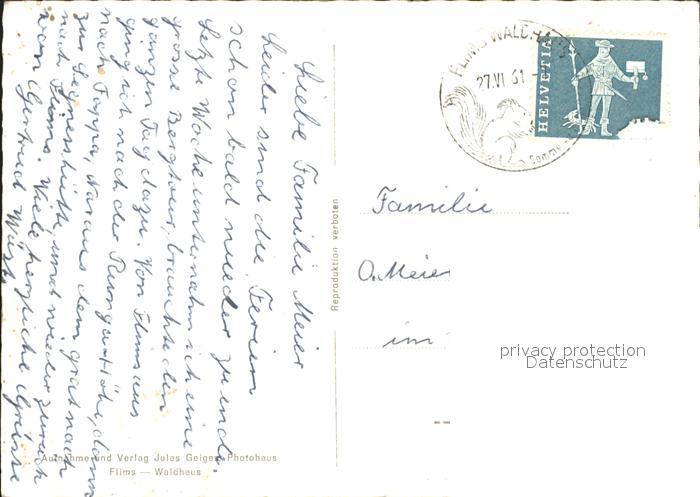 Liebe Familie Meier
Leider sind die Ferien
schon bald wieder zu ende.
Letzte Woche unternahm ich eine
grosse Bergtour, brauchte den
ganzen Tag dazu. Von Flims aus
ging ich nach der Runga Höhe, dann
nach Foppa, Naraus dem grat nach
zur Segneshütte, und wieder zurück
nach Flims. Viele herzliche Grüsse
von Gertrud Wüst
Aufnahme und Verlag Jules Geiger, Photohaus
Flims — Waldhaus
Reproduktion verboten
FLIMS WALDHAUS
27.VI 61
Somme
HELVETIA
Familie
O. Meier
im
privacy protection
Datenschutz